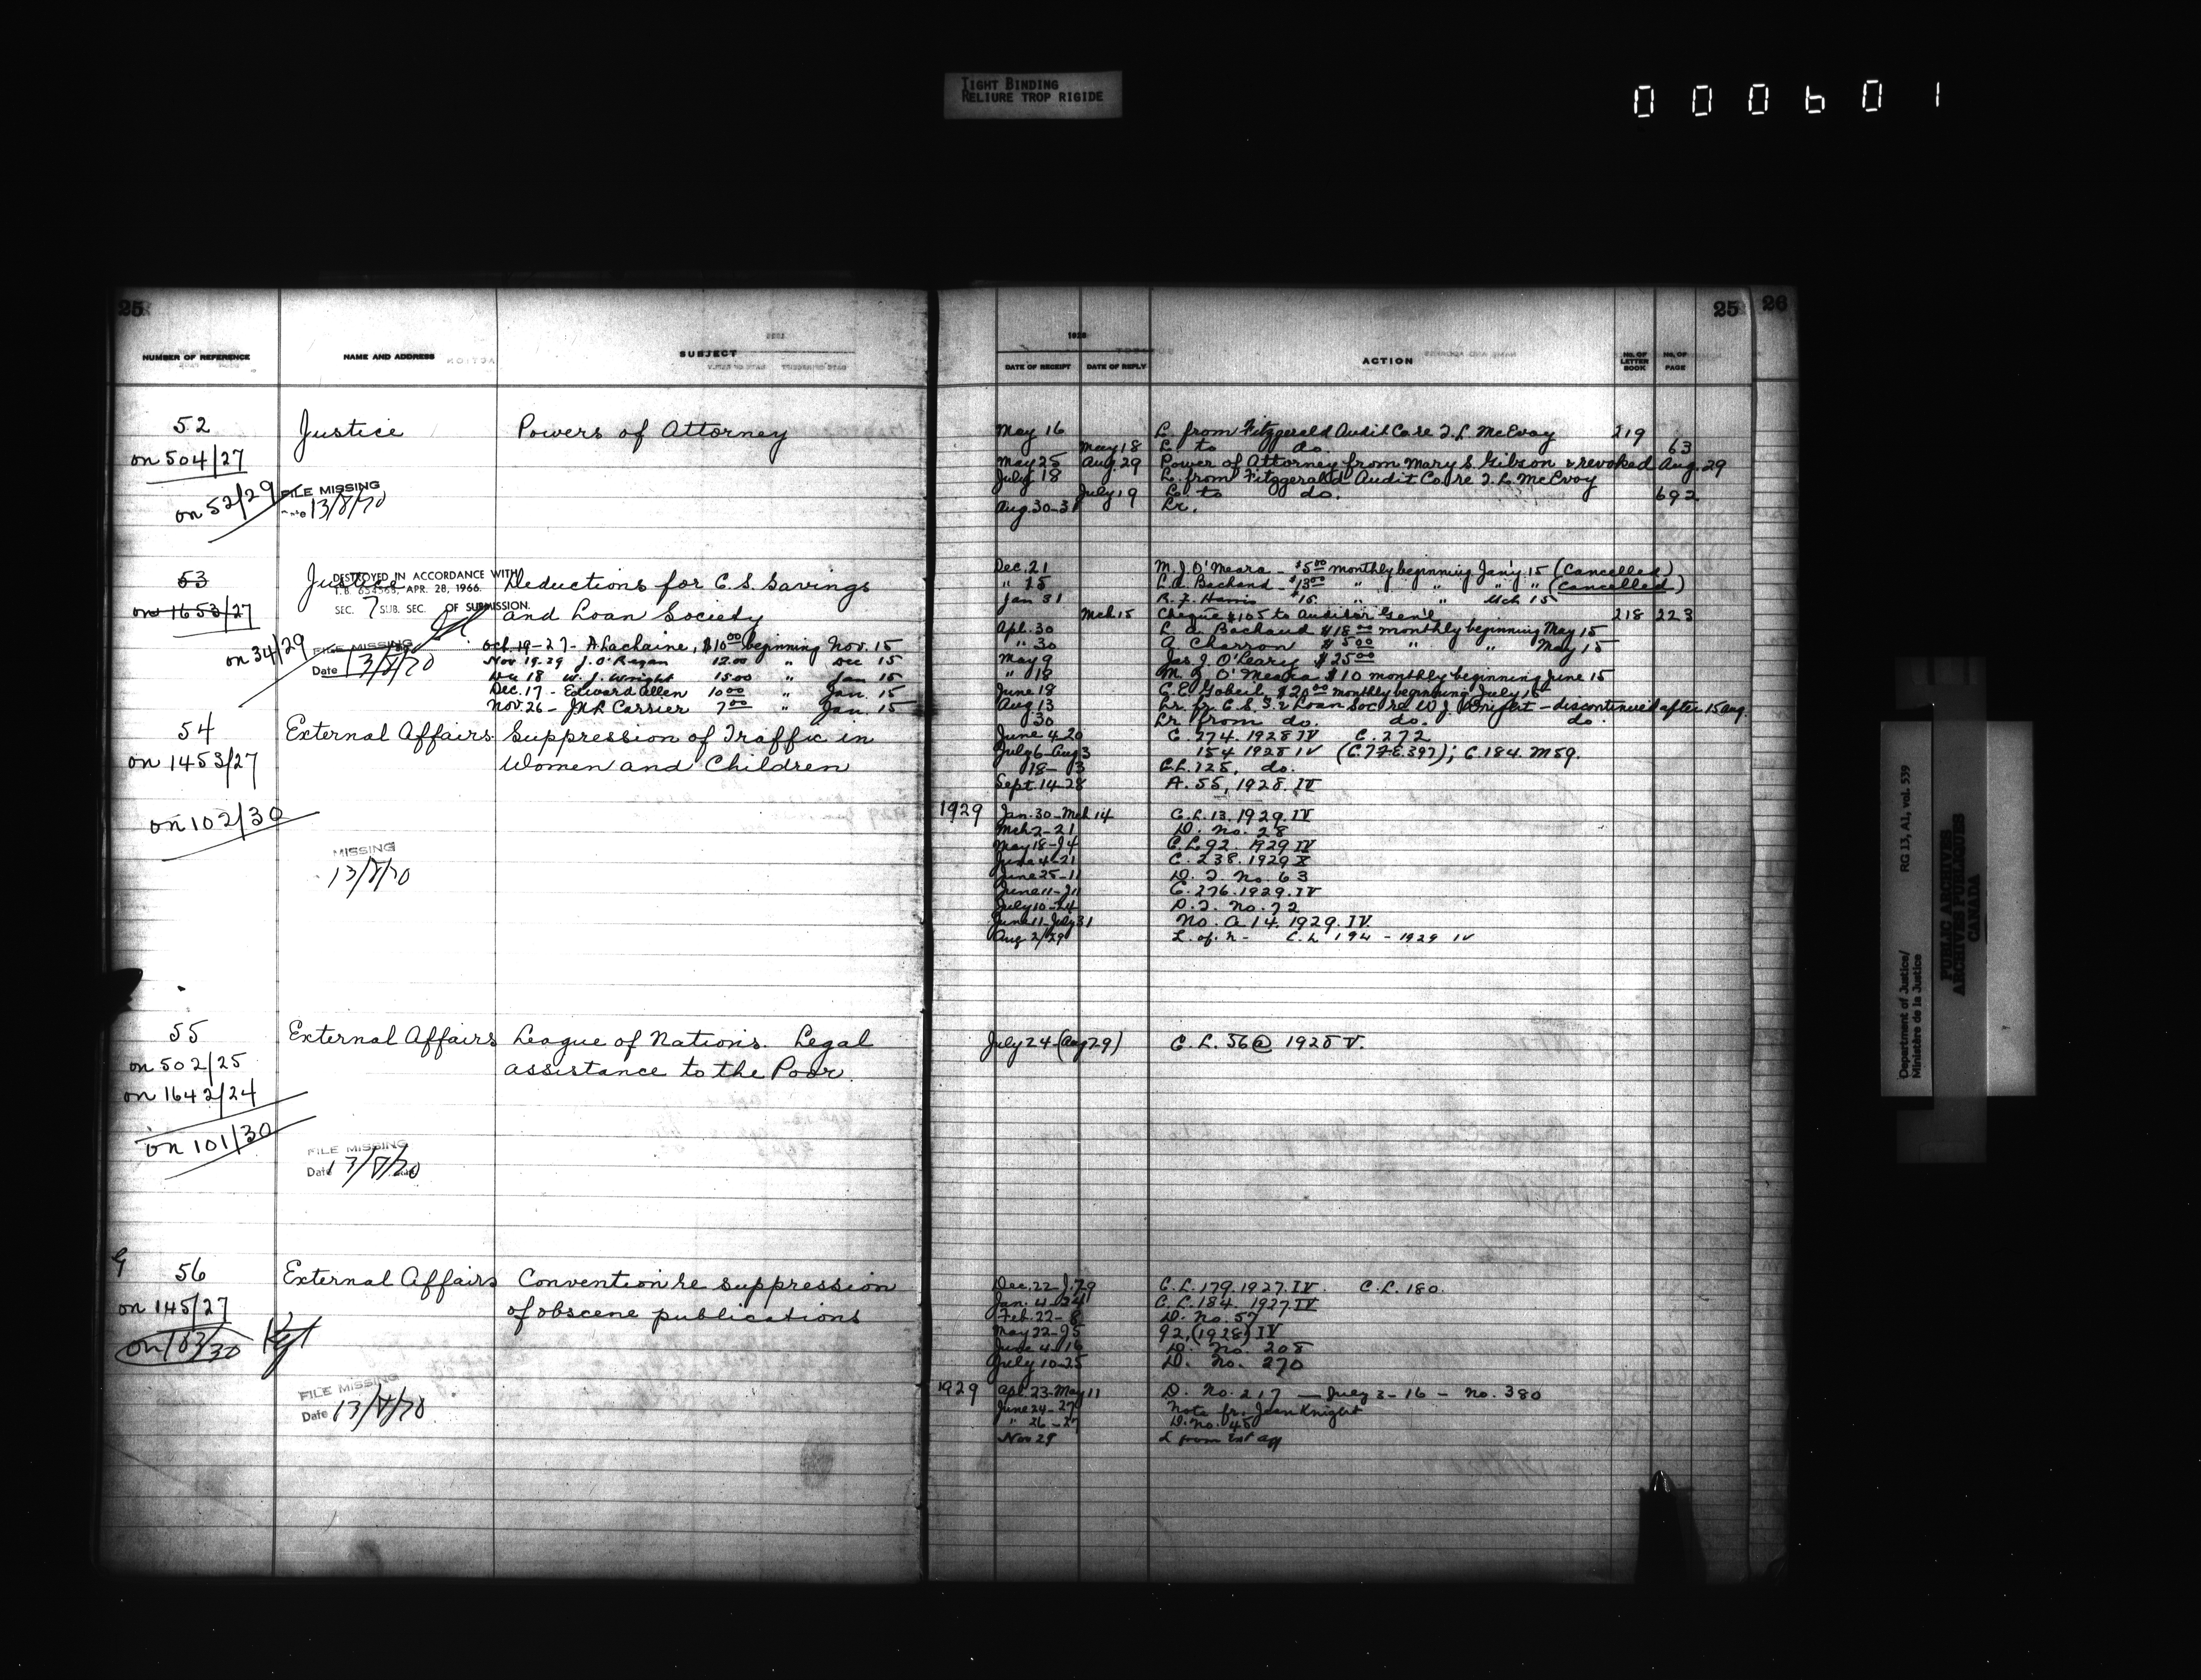 TIGHT BINDING
RELIURE TROP RIGIDE
000601
25
NUMBER OF REFERENCE NAME AND ADDRESS SUBJECT
52 Justice Powers of Attorney
on 504/27
on 52/29 FILE MISSING
13/8/70
53 Justice Deductions for C.S. Savings
DESTROYED IN ACCORDANCE WITH
T.B. 654563, APR. 28, 1966.
SEC. 7 SUB. SEC. OF SUBMISSION.
on 1653/27 and Loan Society
on 34/29 FILE MISSING
Date 13/8/70
Oct. 19-27 - A Lachaine, $10 00 beginning Nov. 15
Nov 19.29 J. O'Regan 12.00 " Dec 15
Dec 18 W. J. Wright 15 00 " Jan 15
Dec. 17 - Edward Allen 10 00 " Jan. 15
Nov. 26 - Carrier 7 00 " Jan. 15
54 External Affairs Suppression of Traffic in
on 1453/27 Women and Children
on 102/30
MISSING
13/8/70
55 External Affairs League of Nations. Legal
on 502/25 assistance to the Poor.
on 1642/24
on 101/30
FILE MISSING
Date 13/8/70
56 External Affairs Convention re suppression
on 145/27 of obscene publications
on 103/30
FILE MISSING
Date 13/8/70
25 26
1928
DATE OF RECEIPT DATE OF REPLY ACTION No. OF LETTER BOOK No. OF PAGE
May 16 L. from Fitzgerald Audit Co re T. L. McEvoy 219
May 18 L. to do. 63
May 25 Aug. 29 Power of Attorney from Mary S. Gibson & revoked Aug. 29
July 18 L. from Fitzgerald Audit Co. re T. L. McEvoy
July 19 L. to do. 692
Aug. 30-31 Lr.
Dec. 21 M. J. O'Meara - $5 00 monthly beginning Jan'y. 15 (Cancelled)
" 15 L. A. Bachand - $13 00 " " " " (Cancelled)
Jan 31 R. F. Harris $15. " " Mch 15
Mch. 15 Cheque $105 to Auditor Gen'l 218 223
Apl. 30 L. A. Bachand $18 00 monthly beginning May 15
" 30 A Charron $5 00 " " May 15
May 9 Jas J. O'Leary $25 00
" 18 M. J. O'Meara $10 monthly beginning June 15
June 18 C. E. Gobeil, $20 00 monthly beginning July 15
Aug. 13 Lr. fr. C. S. S. & Loan Soc re W. J. - discontinued after 15 Aug.
30 Lr from do. do. do.
June 4-20 C. 274. 1928 IV C. 272
July 6-Aug 3 154 1928 IV ; C. 184. M 59.
18- 3 C.L. 125, do.
Sept. 14-28 A. 55, 1928. IV
1929 Jan. 30-Mch 14 C. L. 13. 1929. IV
Mch 2-21 D. No. 28
May 18-J4 C. L. 92. 1929 IV
June 4-21 C. 238. 1929 X
June 25-11 D. T. No. 63
June 11-J11 C. 276. 1929. IV
July 10-24 D. T. No. 72
June 11-July 31 No. A 14. 1929. IV.
Aug 2/29 C. L 194 - 1929 IV
July 24-(Aug 29) C. L. 56@ 1928 V.
Dec. 22-J. 79 C. L. 179. 1927. IV. C. L. 180.
Jan. 4-24 C. L. 184. 1927. IV
Feb. 22-8 D. No. 57
May 22-J5 92, (1928) IV
June 4-16 D. No. 208
July 10-25 D. No. 270
1929 Apl. 23-May 11 D. No. 217 — July 3-16 - No. 380
June 24-27 Note fr. Jean Knight
" 26-27 D. No. 45
Nov 29 L from Ext Aff
Department of Justice/
Ministère de la Justice
RG 13, A1, vol. 539
PUBLIC ARCHIVES
ARCHIVES PUBLIQUES
CANADA